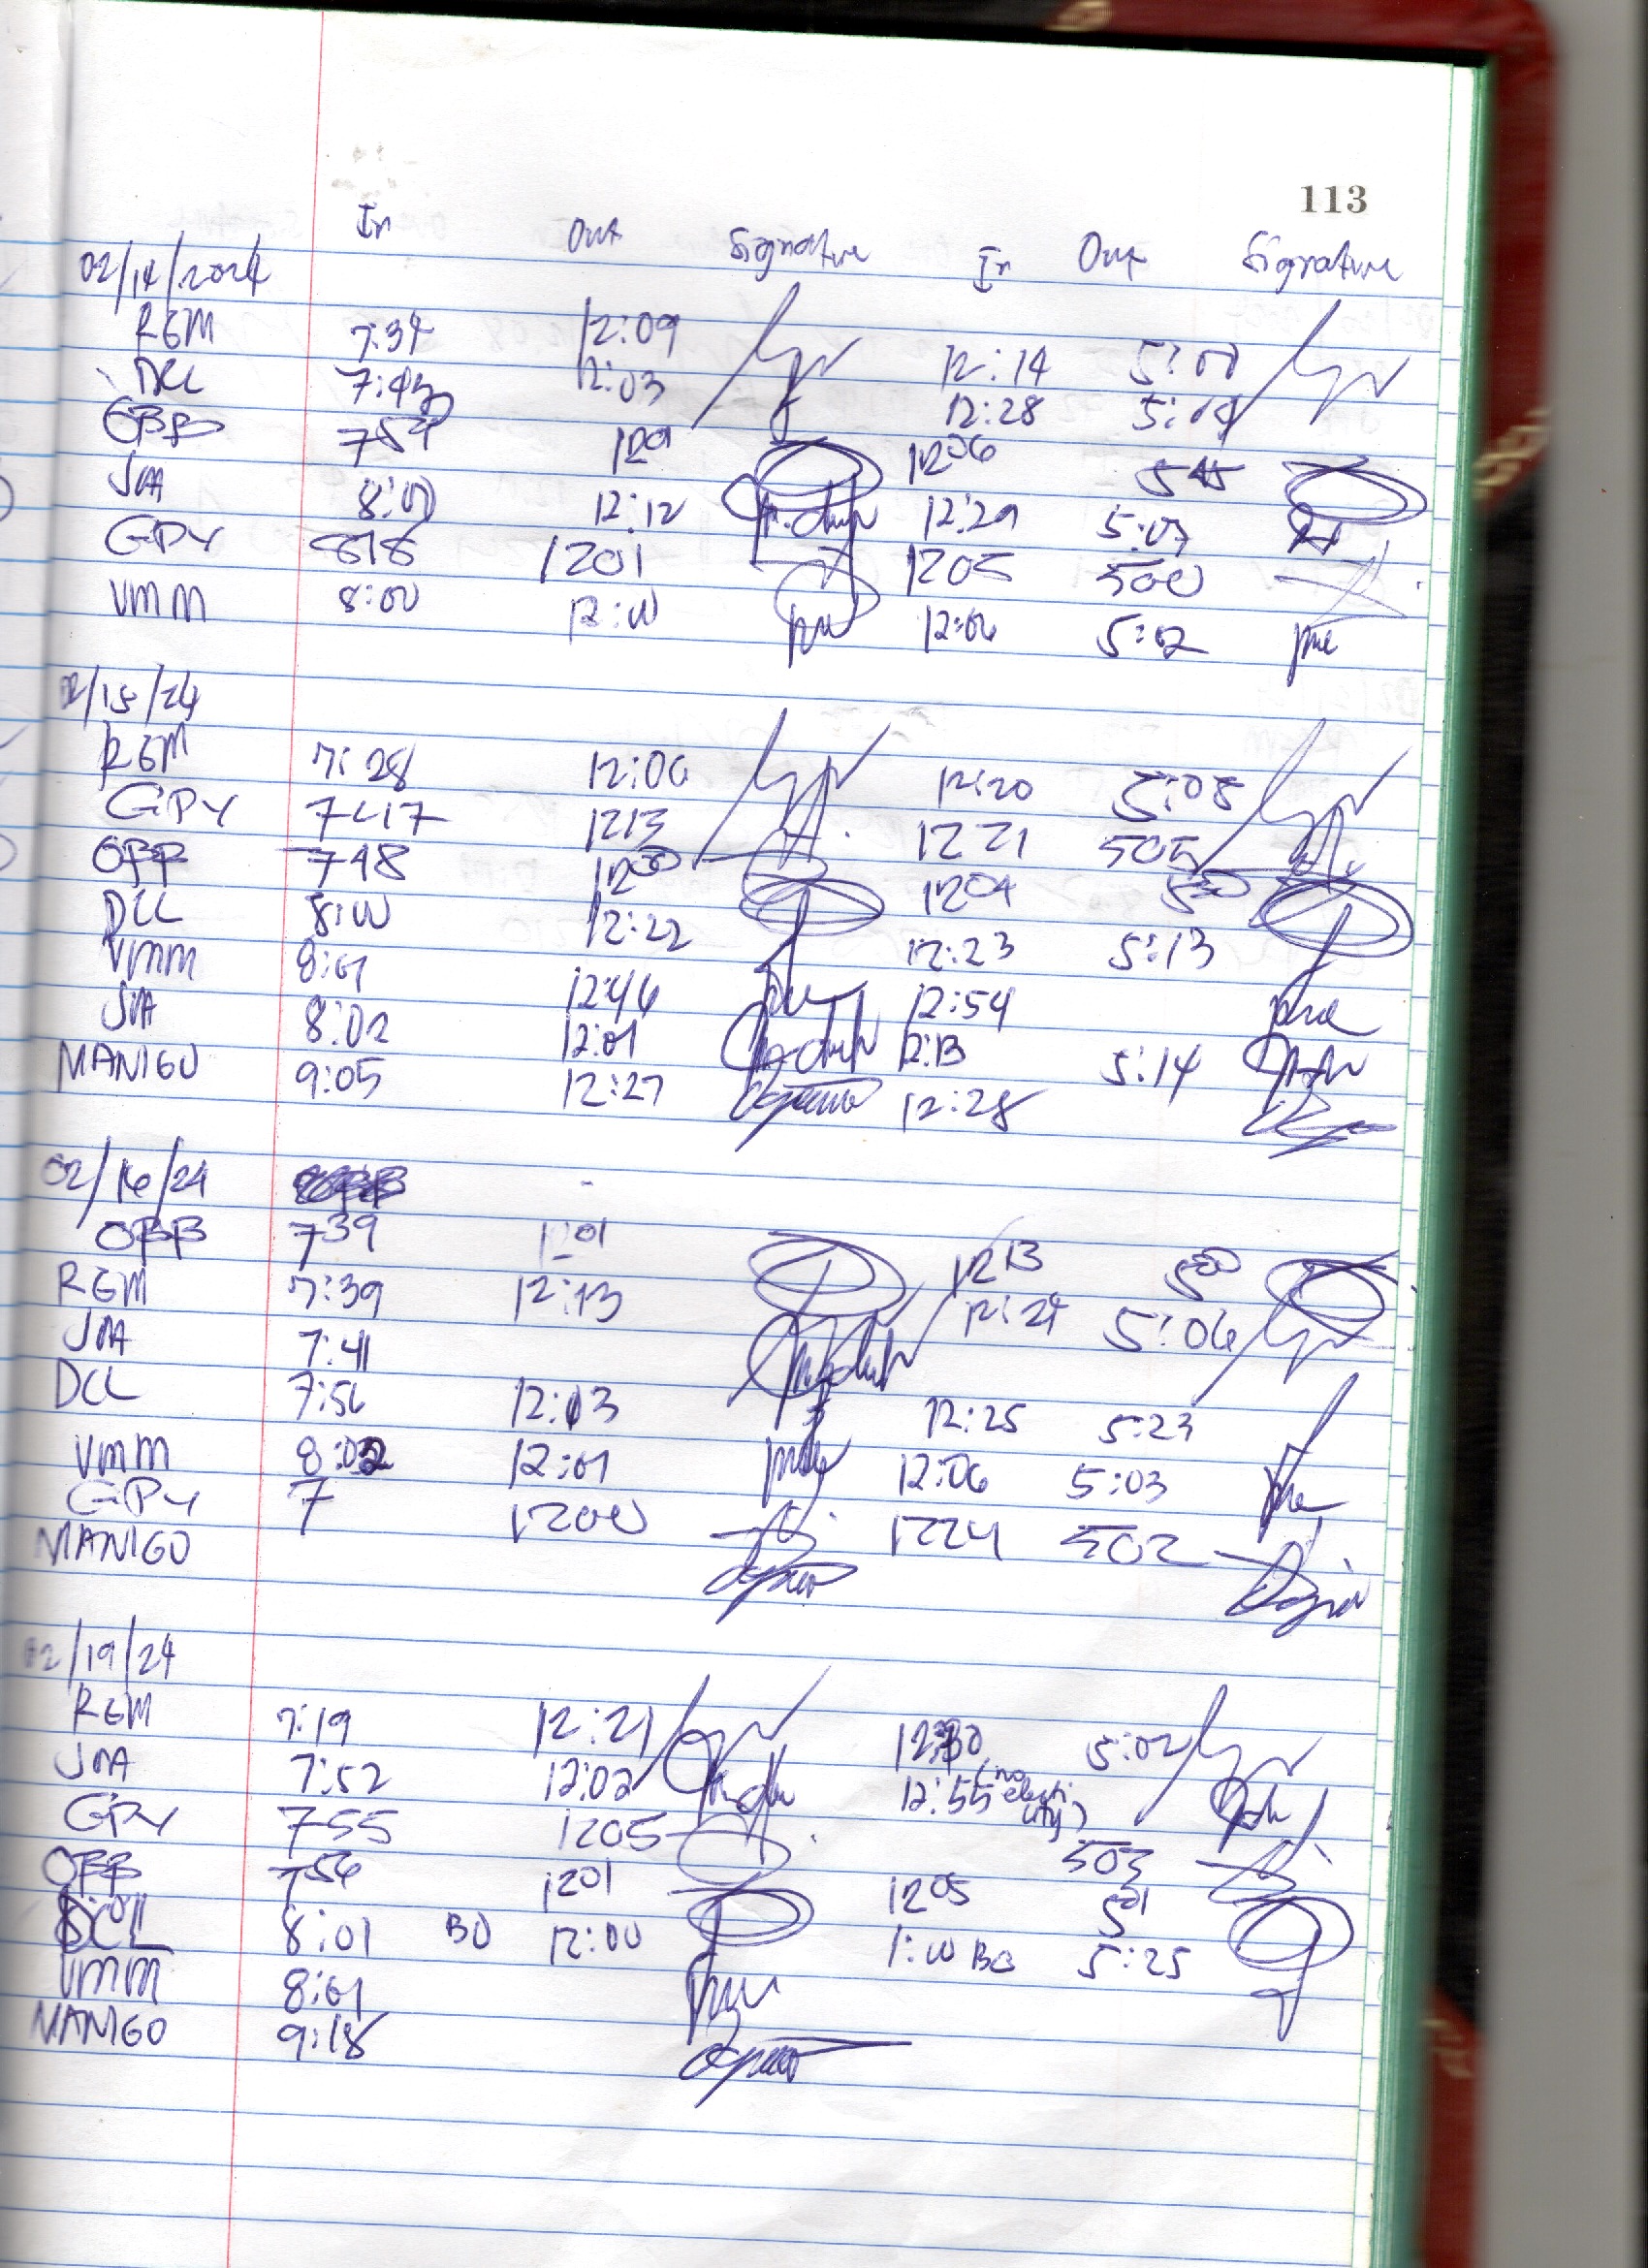 113
In Out Signature In Out Signature
02/14/2024
REM 7:34 12:09 12:14 5:00
DCL 7:45 12:03 12:28 5:04
OBB 754 1201 1206 545
JMA 8:00 12:12 12:29 5:07
GPY 818 1201 1205 500
VMM 8:00 12:00 12:06 5:02
02/15/24
REM 7:28 12:00 12:20 5:08
GPY 747 1213 1221 505
OBB 748 1200 1204 500
DCL 8:00 12:22 12:23 5:13
VMM 8:01 12:46 12:54
JMA 8:02 12:01 12:13 5:14
MANIGO 9:05 12:27 12:28
02/16/24
OBB 739 1201 1213 500
REM 7:39 12:13 12:24 5:06
JMA 7:41
DCL 7:56 12:03 12:25 5:23
VMM 8:02 12:01 12:06 5:03
GPY 7 1200 1224 502
MANIGO
02/19/24
REM 7:19 12:21 12:30 5:02
JMA 7:52 12:02 12:55 (no electricity)
GPY 755 1205 503
OBB 756 1201 1205 501
DCL 8:01 BO 12:00 1:00 BO 5:25
VMM 8:01
MANIGO 9:18